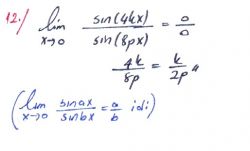 12./ lim x→0 sin(4kx)/sin(8px) = 0/0
4k/8p = k/2p //
(lim x→0 sinax/sinbx = a/b idi)